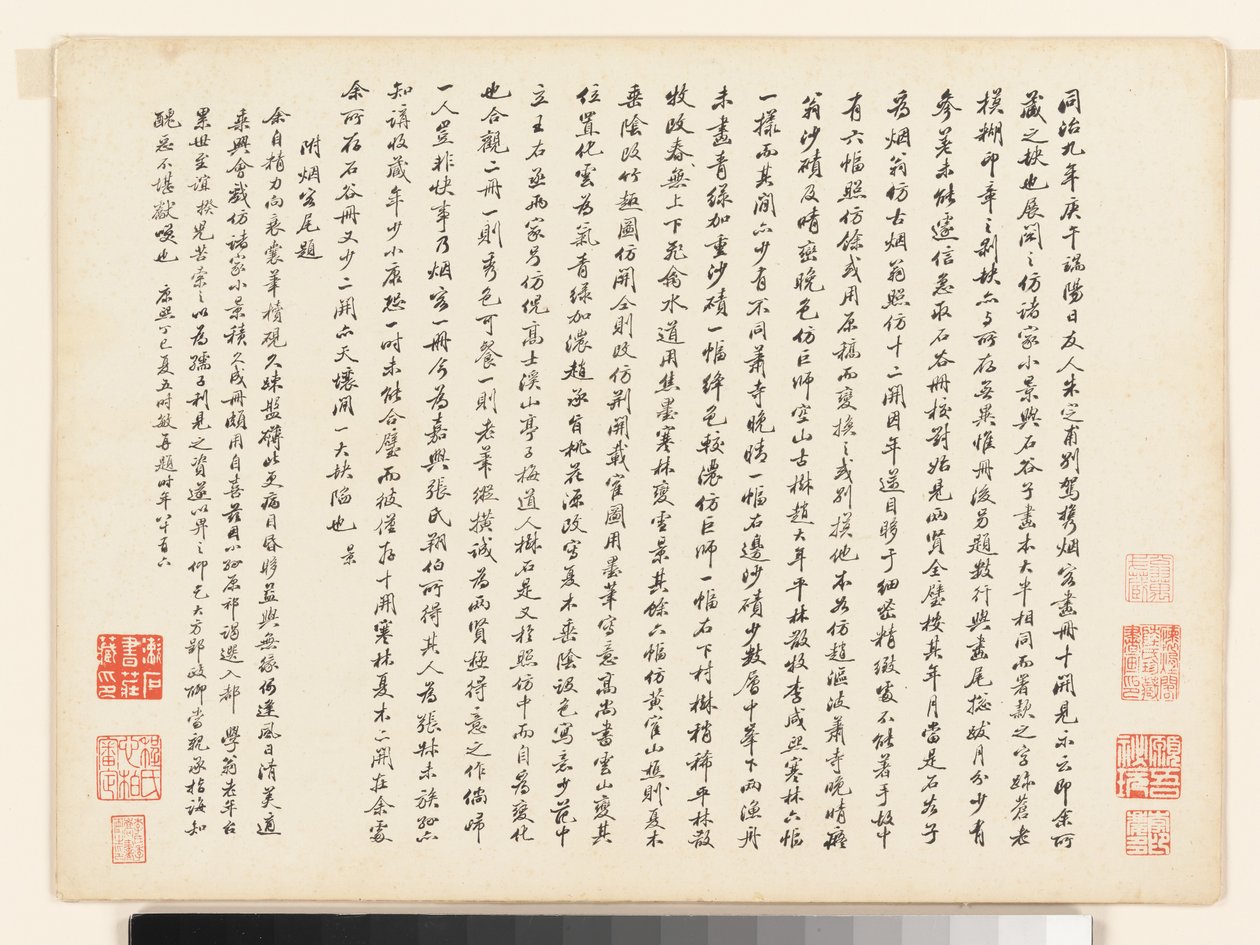 同治九年庚午端陽日友人朱定甫別駕携烟客畫冊十開見示云即余所
藏之缺也展閱之仿諸家小景與石谷子畫本大半相同而署款之字跡蒼老
模糊印章之剥缺亦与所存無異惟冊後另題數行與畫尾總跋月分少有
參差未能遽信急取石谷冊校對始見兩賢全璧按其年月當是石谷子
為烟翁仿古烟翁照仿十二開因年邁目眵于細密精緻處不能著手故中
有六幅照仿餘或用原稿而變換之或別摸他本如仿趙漚波蕭寺晚晴癡
翁沙磧及晴巒晚色仿巨師空山古樹趙大年平林散牧李咸熙寒林六幅
一樣而其間亦少有不同蕭寺晚晴一幅右邊沙磧少數層中華下兩漁舟
未畫青綠加重沙磧一幅絳色較濃仿巨師一幅右下村樹稍稀平林散
牧改春無上下飛禽水道用焦墨寒林變雪景其餘六幅仿黃崔山樵則夏木
垂陰改竹趣圖仿關仝則改仿荆關載寉圖用墨筆寫意高尚書雲山變其
位置化雲為氣青綠加濃趙承旨桃花源改寫夏木垂陰設色寫意少范中
立王右丞兩家另仿倪高士溪山亭子梅道人樹石是又於照仿中而自為變化
也合觀二冊一則秀色可餐一則老筆縱橫誠為兩賢極得意之作倘歸
一人豈非快事乃烟客一冊今為嘉興張氏翔伯所得其人為張叔未族孫亦
知講收藏年少小康恐一時未能合璧而彼僅存十開寒林夏木二開在余處
余所存石谷冊又少二開亦天壤間一大缺陷也 景
附烟客尾題
余自精力向衰囊筆櫝硯久疎盤礴比更病目昏眵益與無緣偶逢風日清美適
乘興會戲仿諸家小景積久成冊頗用自喜茲因小孫原祁謁選入都 學翁老年台
累世至誼揆兒苦索之以為孺子利見之資遂以畀之仰乞大方郢政聊當親承指誨知
醜惡不堪獻嗅也 康熙丁巳夏五時敏再題時年八十有六
瀨石
書莊
藏印
程氏
心柏
審定